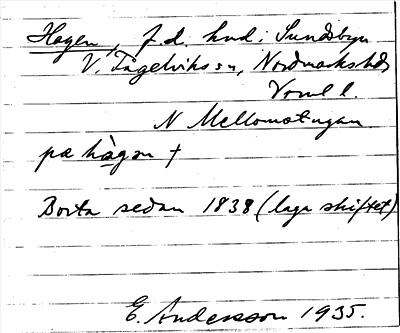 Hagen, f.d. hmd i Sundsbyn
V. Fågelviks sn, Nordmarks hd
Vrml l.
N Mellomstugan
pa hàgan †
Borta sedan 1838 (laga skiftet)
E. Andersson 1935.